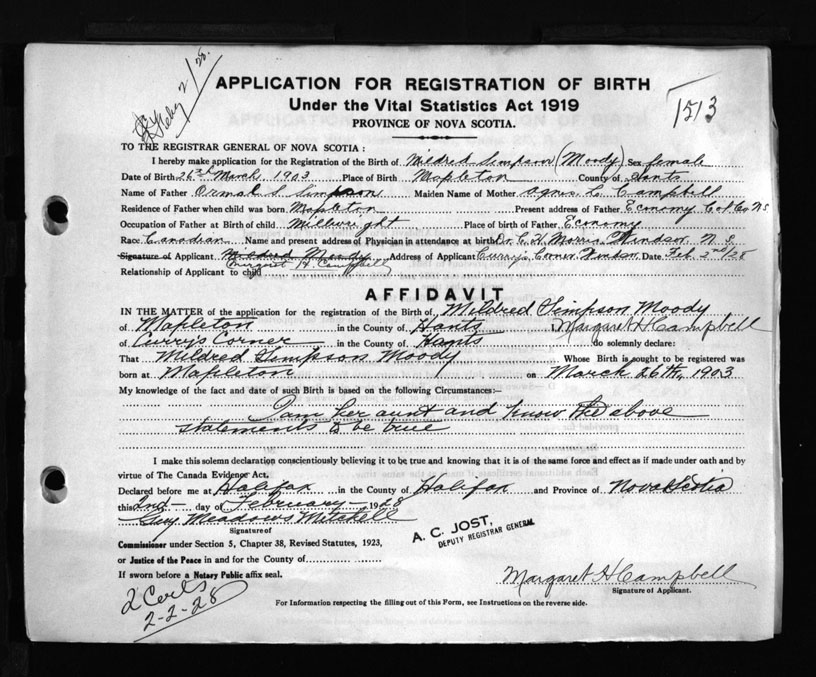 2/28.
APPLICATION FOR REGISTRATION OF BIRTH
Under the Vital Statistics Act 1919
1513
PROVINCE OF NOVA SCOTIA.
TO THE REGISTRAR GENERAL OF NOVA SCOTIA :
I hereby make application for the Registration of the Birth of Mildred Simpson (Moody) Sex female
Date of Birth 26th March 1903 Place of Birth Mapleton County of Hants
Name of Father S. Simpson Maiden Name of Mother Agnes L. Campbell
Residence of Father when child was born Mapleton Present address of Father Economy Col Co NS
Occupation of Father at Birth of child Millwright Place of birth of Father Economy
Race Canadian Name and present address of Physician in attendance at birth Dr. C. H. Morris Windsor N. S.
Signature of Applicant Mildred Moody Address of Applicant Curry's Corner Windsor Date Feb 2nd/28
Margaret H. Campbell
Relationship of Applicant to child
AFFIDAVIT
IN THE MATTER of the application for the registration of the Birth of Mildred Simpson Moody
of Mapleton in the County of Hants I, Margaret H Campbell
of Curry's Corner in the County of Hants do solemnly declare:
That Mildred Simpson Moody Whose Birth is sought to be registered was
born at Mapleton on March 26th, 1903
My knowledge of the fact and date of such Birth is based on the following Circumstances:-
I am her aunt and know the above
statements to be true
I make this solemn declaration conscientiously believing it to be true and knowing that it is of the same force and effect as if made under oath and by
virtue of The Canada Evidence Act.
Declared before me at Halifax in the County of Halifax and Province of Nova Scotia
this 2nd day of February 1928
Guy Meadows Mitchell
Signature of
A. C. JOST,
DEPUTY REGISTRAR GENERAL
Commissioner under Section 5, Chapter 38, Revised Statutes, 1923,
or Justice of the Peace in and for the County of
If sworn before a Notary Public affix seal.
Margaret H Campbell
Signature of Applicant.
2 Certs
2-2-28
For Information respecting the filling out of this Form, see Instructions on the reverse side.